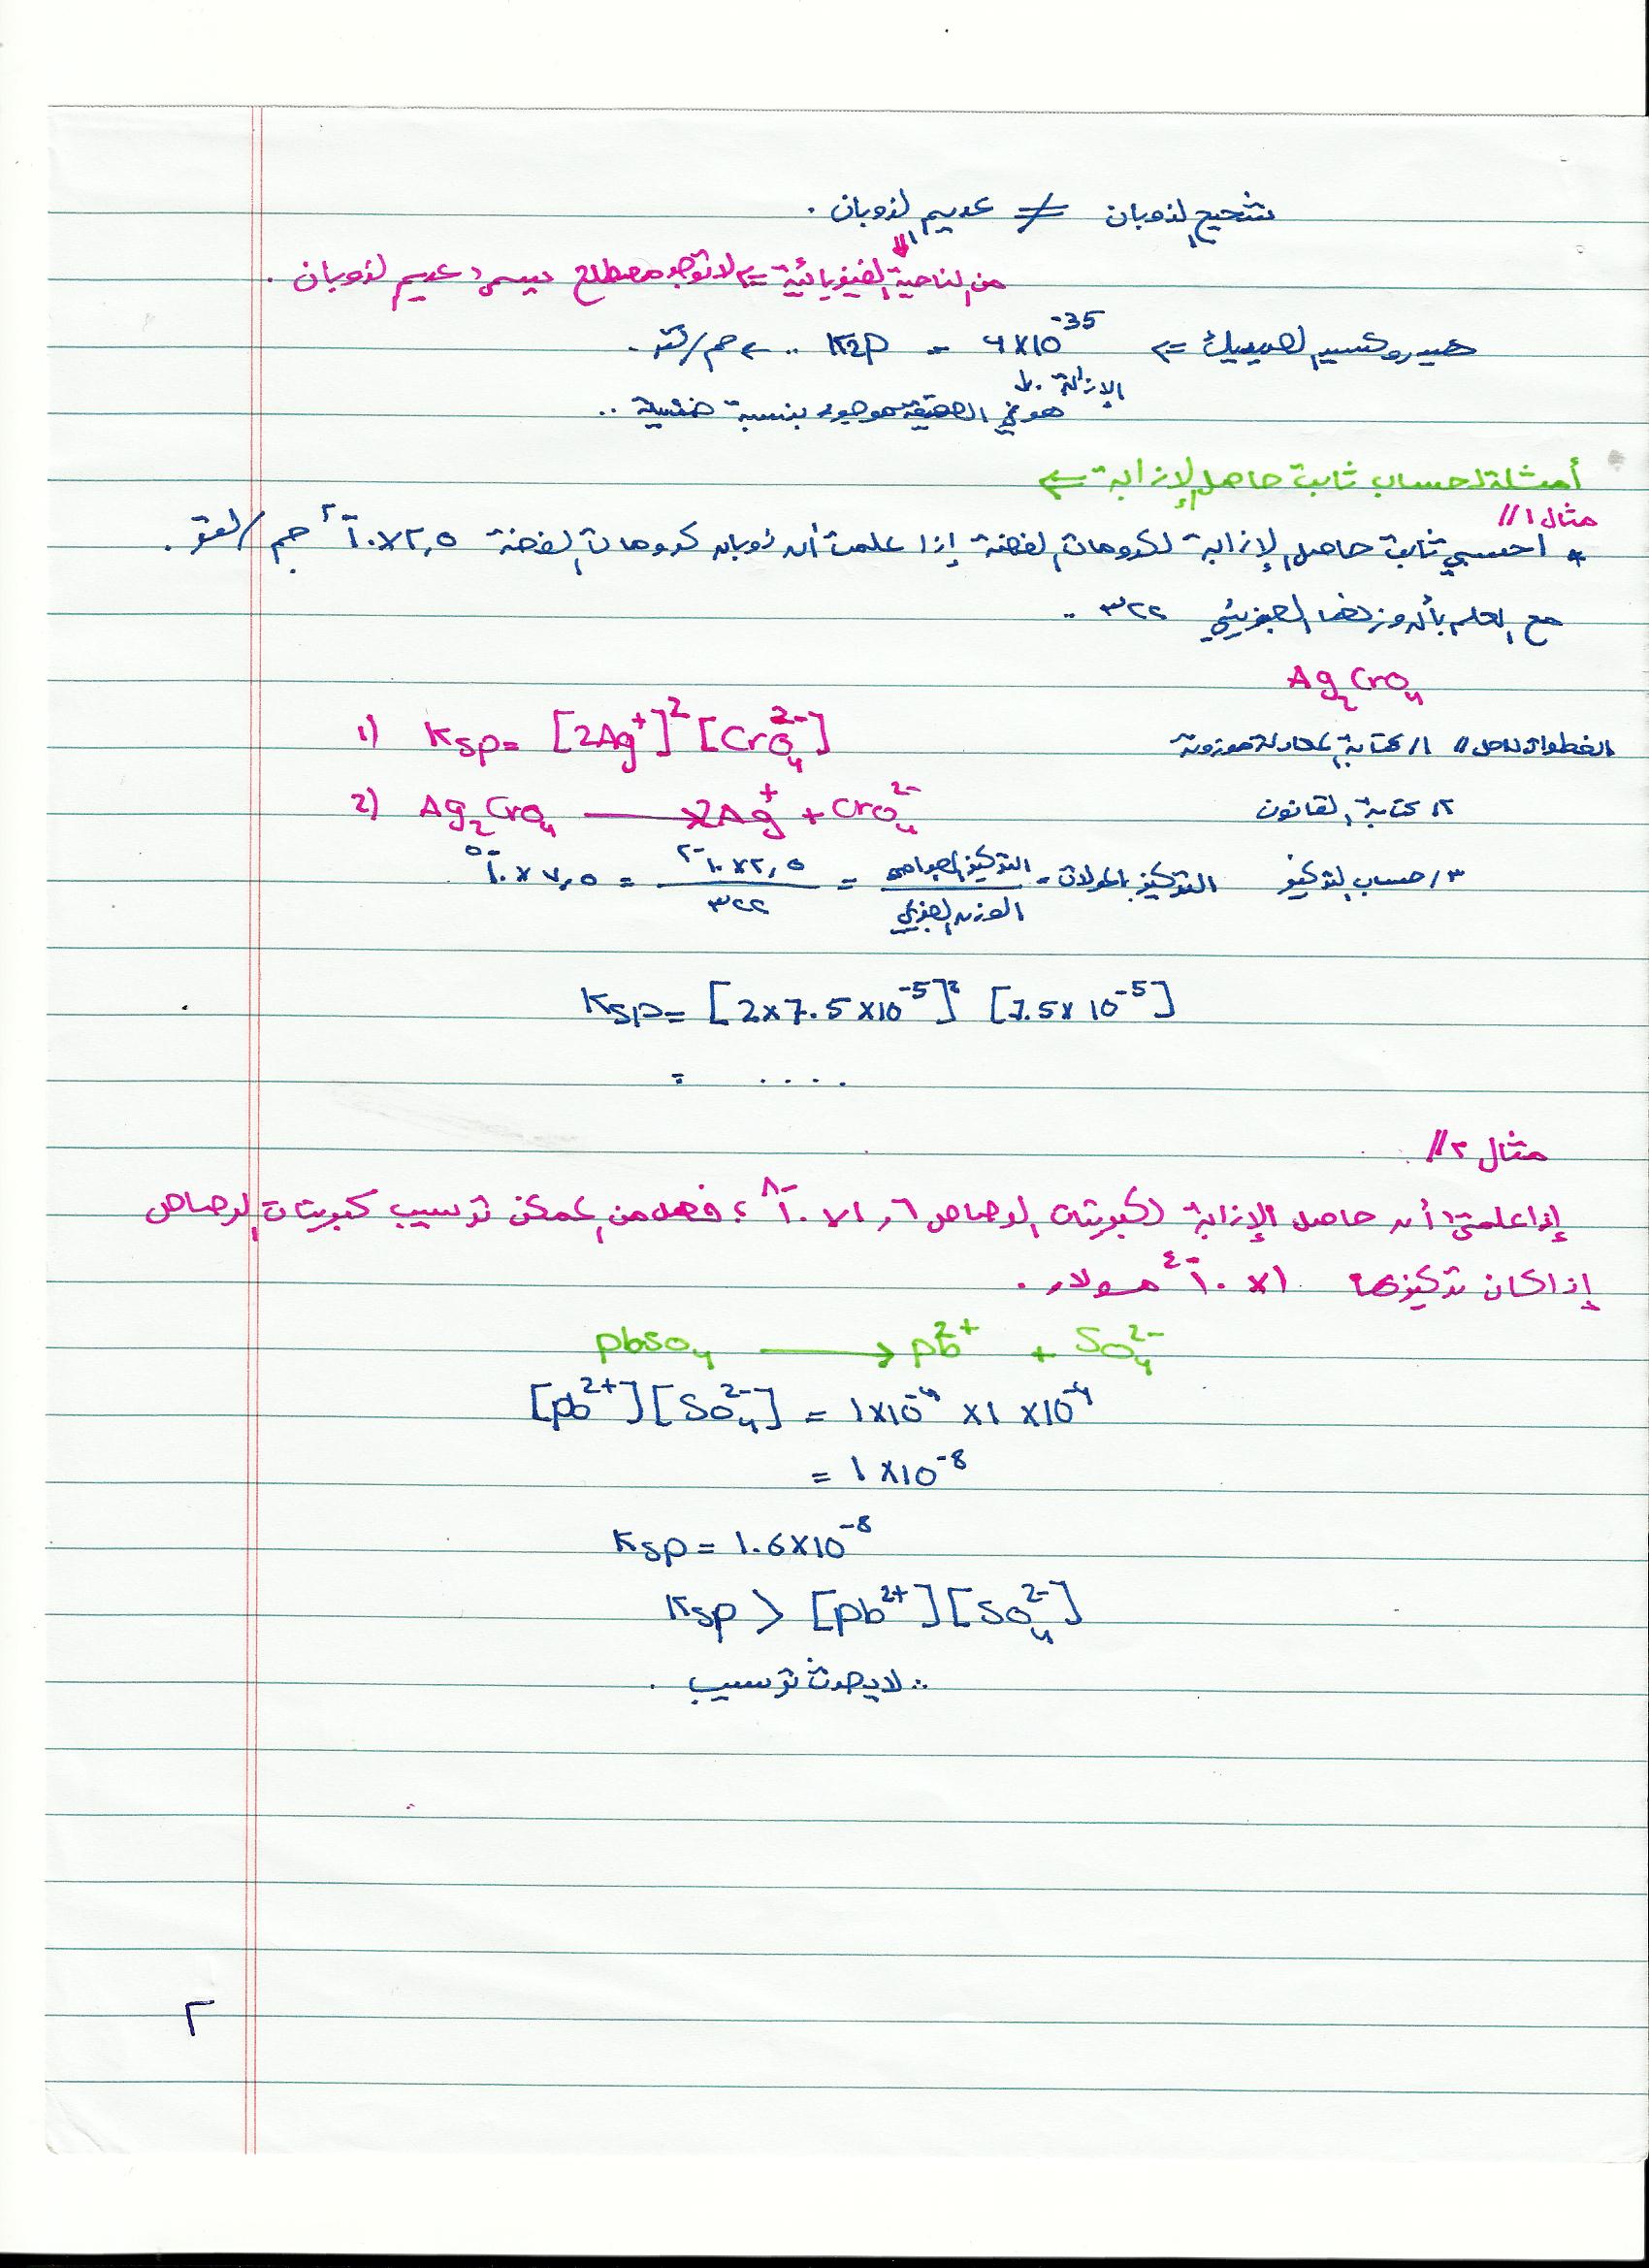 شحيح الذوبان ≠ عديم الذوبان .
⇓
من الناحية الفيزيائية ⇐ لا توجد مصطلح يسمى: عديم الذوبان .
هيدروكسيد الحديديك ⇐ 4×10⁻³⁵ = Ksp .. ← جم/لتر .
هو في الحقيقة موجود بنسبة ضئيلة ..
أمثلة لحساب ثابت حاصل الإذابة ⇐
مثال ١//
* احسبي ثابت حاصل الإذابة لكرومات الفضة إذا علمت أن ذوبان كرومات الفضة ٢,٥×١٠⁻² جم/لتر .
مع العلم بأن وزنها الجزيئي ٣٢٢ ..
Ag₂CrO₄
الخطوات للحل // ١/ كتابة معادلة موزونة
1) Ksp= [2Ag⁺]² [CrO₄²⁻]
٢/ كتابة القانون
2) Ag₂CrO₄ → 2Ag⁺ + CrO₄²⁻
٣/ حساب التركيز التركيز بالمولات = التركيز بالجرام / الوزن الجزيئي = ٢,٥×١٠⁻² / ٣٢٢ = ٧,٥ × ١٠⁻⁵
Ksp= [2×7.5×10⁻⁵]² [7.5×10⁻⁵]
= ....
مثال ٢//
إذا علمتي أن حاصل الإذابة لكبريتات الرصاص ١,٦×١٠⁻⁸ ؛ فهل من الممكن ترسيب كبريتات الرصاص
إذا كان تركيزها ١×١٠⁻⁴ مولار .
PbSO₄ → Pb²⁺ + SO₄²⁻
[Pb²⁺][SO₄²⁻] = 1×10⁻⁴ ×1×10⁻⁴
= 1×10⁻⁸
Ksp = 1.6×10⁻⁸
Ksp > [Pb²⁺][SO₄²⁻]
∴ لا يحدث ترسيب .
٢